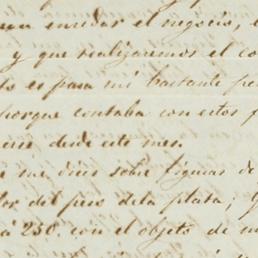 enredar el negocio, e
y que realizaremos el co
to es para mi bastante pe
porque contaba con estos f
desde este mes.
me dices sobre figuras de
lor del peso de la plata; y
a 250 con el objeto de m